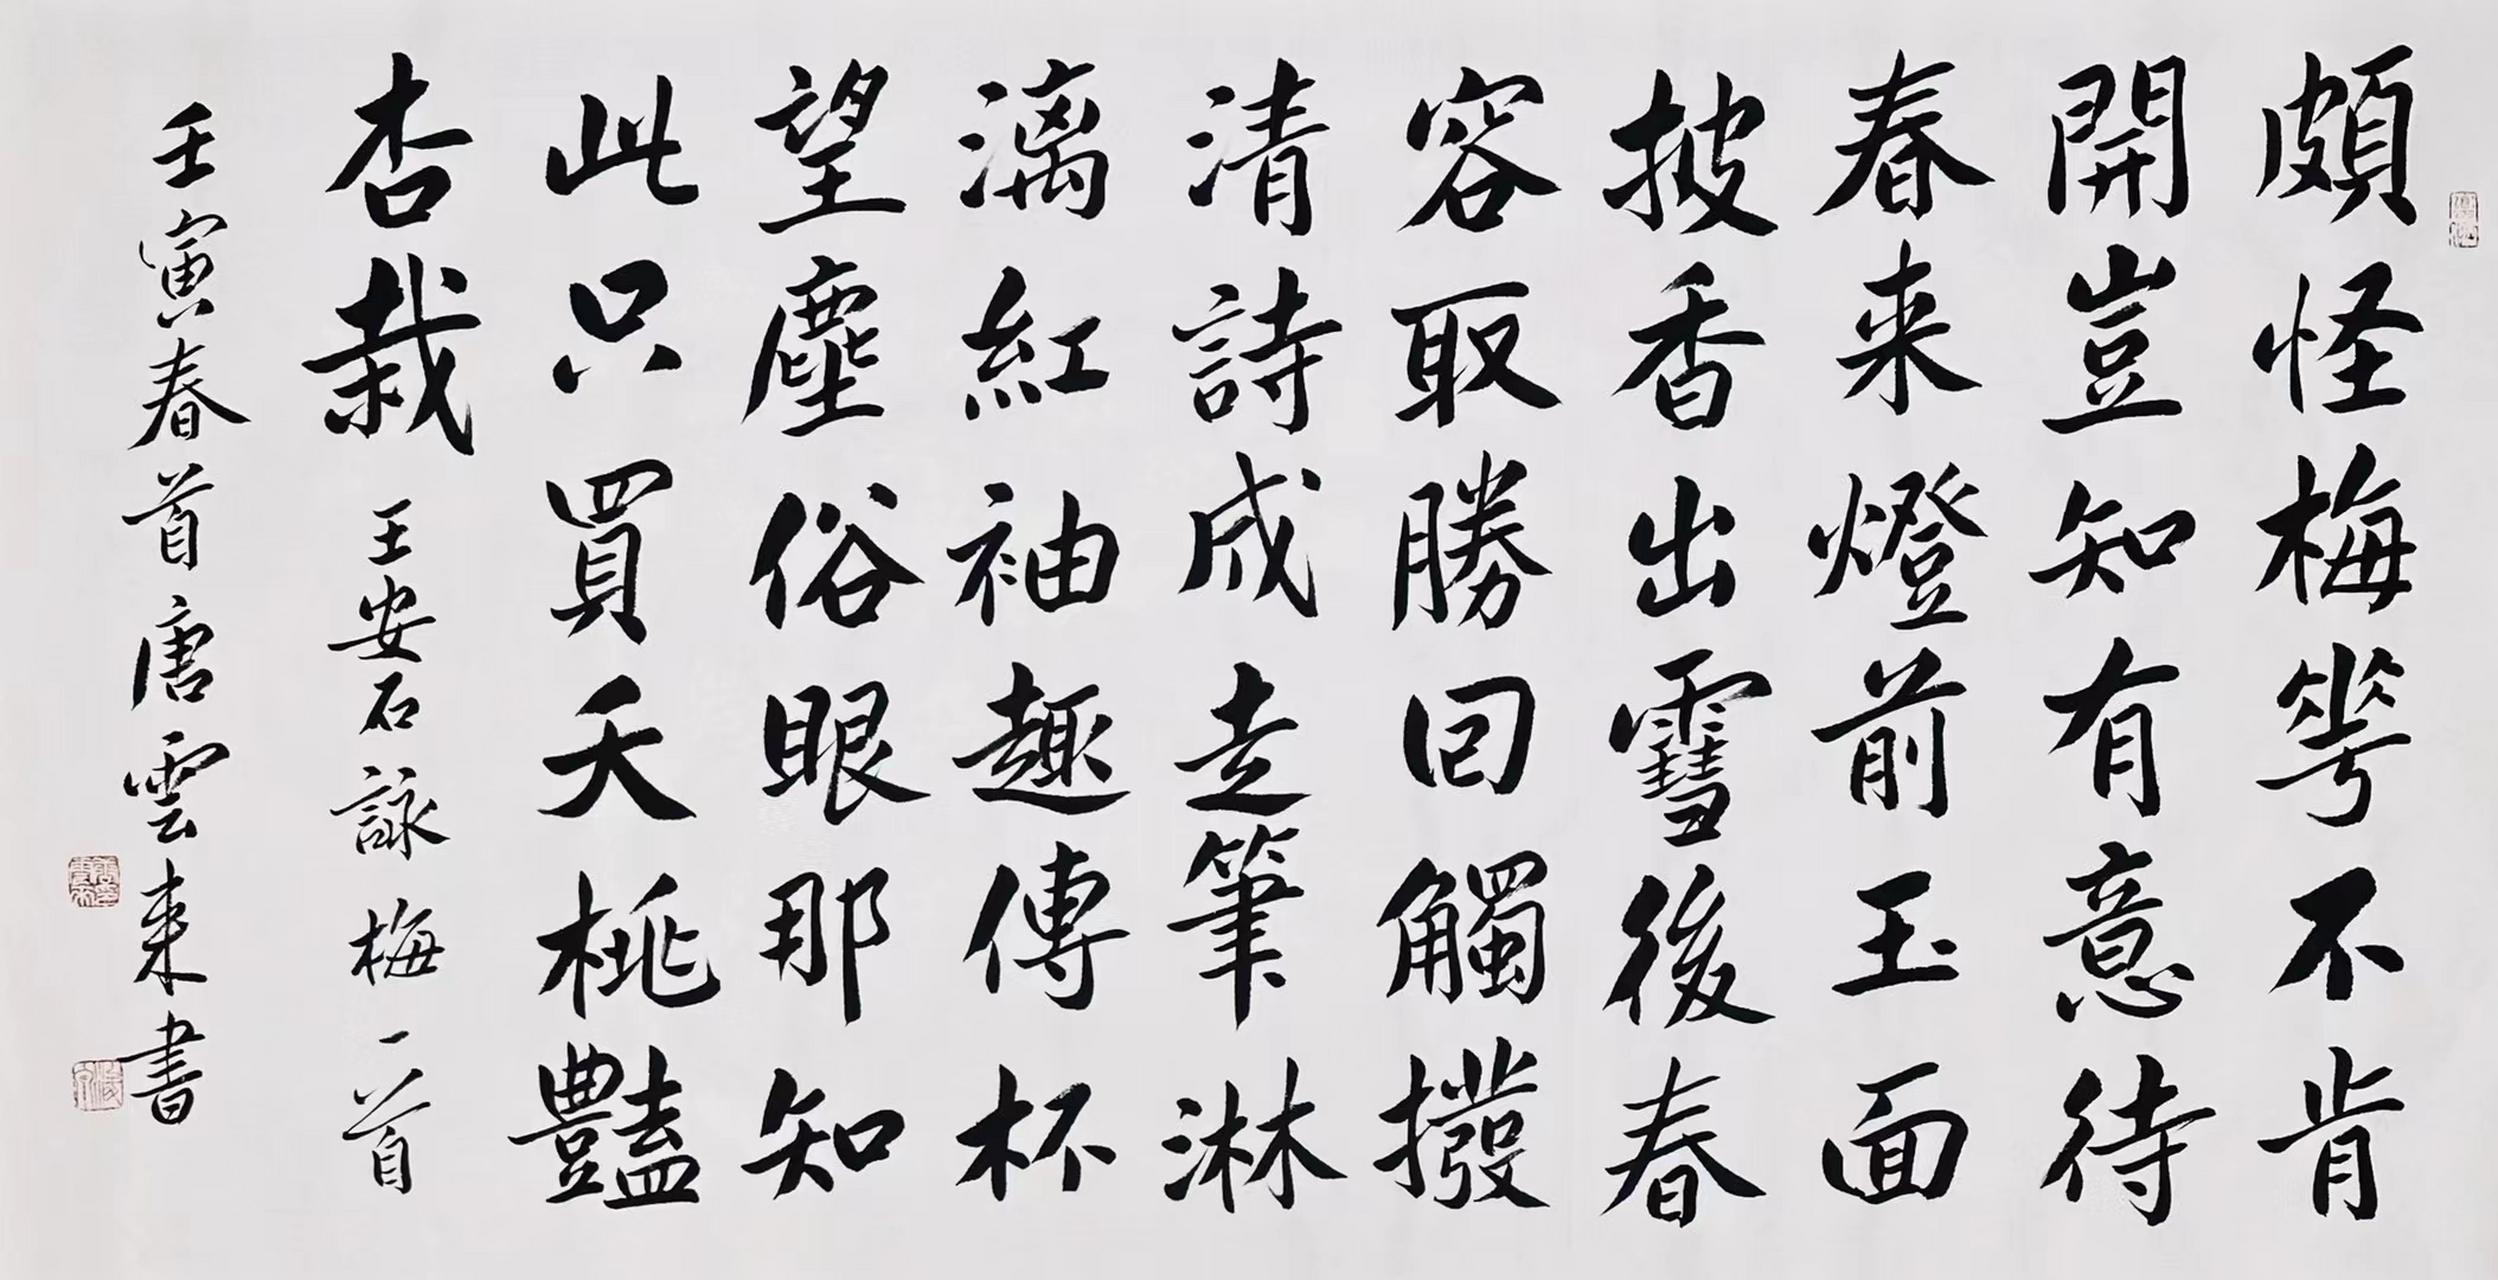 頗怪梅花不肯
開豈知有意待
春来燈前玉面
披香出雪後春
容取勝回觸撥
清詩成走筆淋
漓紅袖趣傳杯
望塵俗眼那知
此只買夭桃豔
杏栽 王安石詠梅一首
壬寅春首唐雲来書